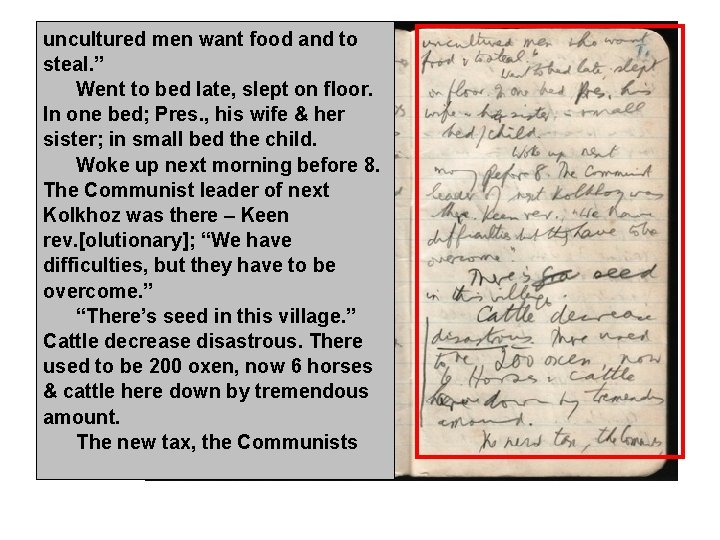 uncultured men want food and to
steal. ”
Went to bed late, slept on floor.
In one bed; Pres. , his wife & her
sister; in small bed the child.
Woke up next morning before 8.
The Communist leader of next
Kolkhoz was there – Keen
rev. [olutionary]; “We have
difficulties, but they have to be
overcome. ”
“There’s seed in this village. ”
Cattle decrease disastrous. There
used to be 200 oxen, now 6 horses
& cattle here down by tremendous
amount.
The new tax, the Communists
uncultured men who want
food & to steal."
Went to bed late, slept
on floor. In one bed Pres. his
wife & her sister, small
bed / child.
Woke up next
before 8. The Communist
leader of next Kolkhoz was
there. Keen rev. "We have
difficulties but they have to be
overcome"
There's seed
in this village.
Cattle decrease
disastrous There used
to be 200 oxen now
6 Horses & Cattle
here down by tremendous
amound.
The new tax, the Communists